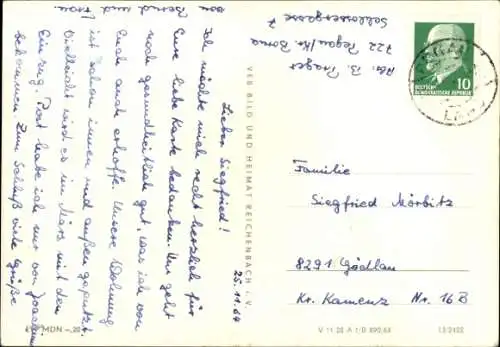 25.11.64
Lieber Siegfried!
Ich möchte mich recht herzlich für
Eure liebe Karte bedanken. Uns geht
noch gesundheitlich gut, was ich von
Euch auch erhoffe. Unsere Wohnung
ist schon innen und außen geputzt.
Vielleicht wird es im März mit dem
Einzug. Post habe ich nur von Joachim
bekommen. Zum Schluß viele Grüße
von Bernd und Frau
VEB BILD UND HEIMAT REICHENBACH i. V.
Abs. B. Prager
722 Pegau/Kr. Borna
PEGAU
10
DEUTSCHE
DEMOKRATISCHE REPUBLIK
Familie
Siegfried Mörbitz
8291 Gödlau
Kr. Kamenz Nr. 16B
MDN -,20
V 11 28 A 1/B 890/64